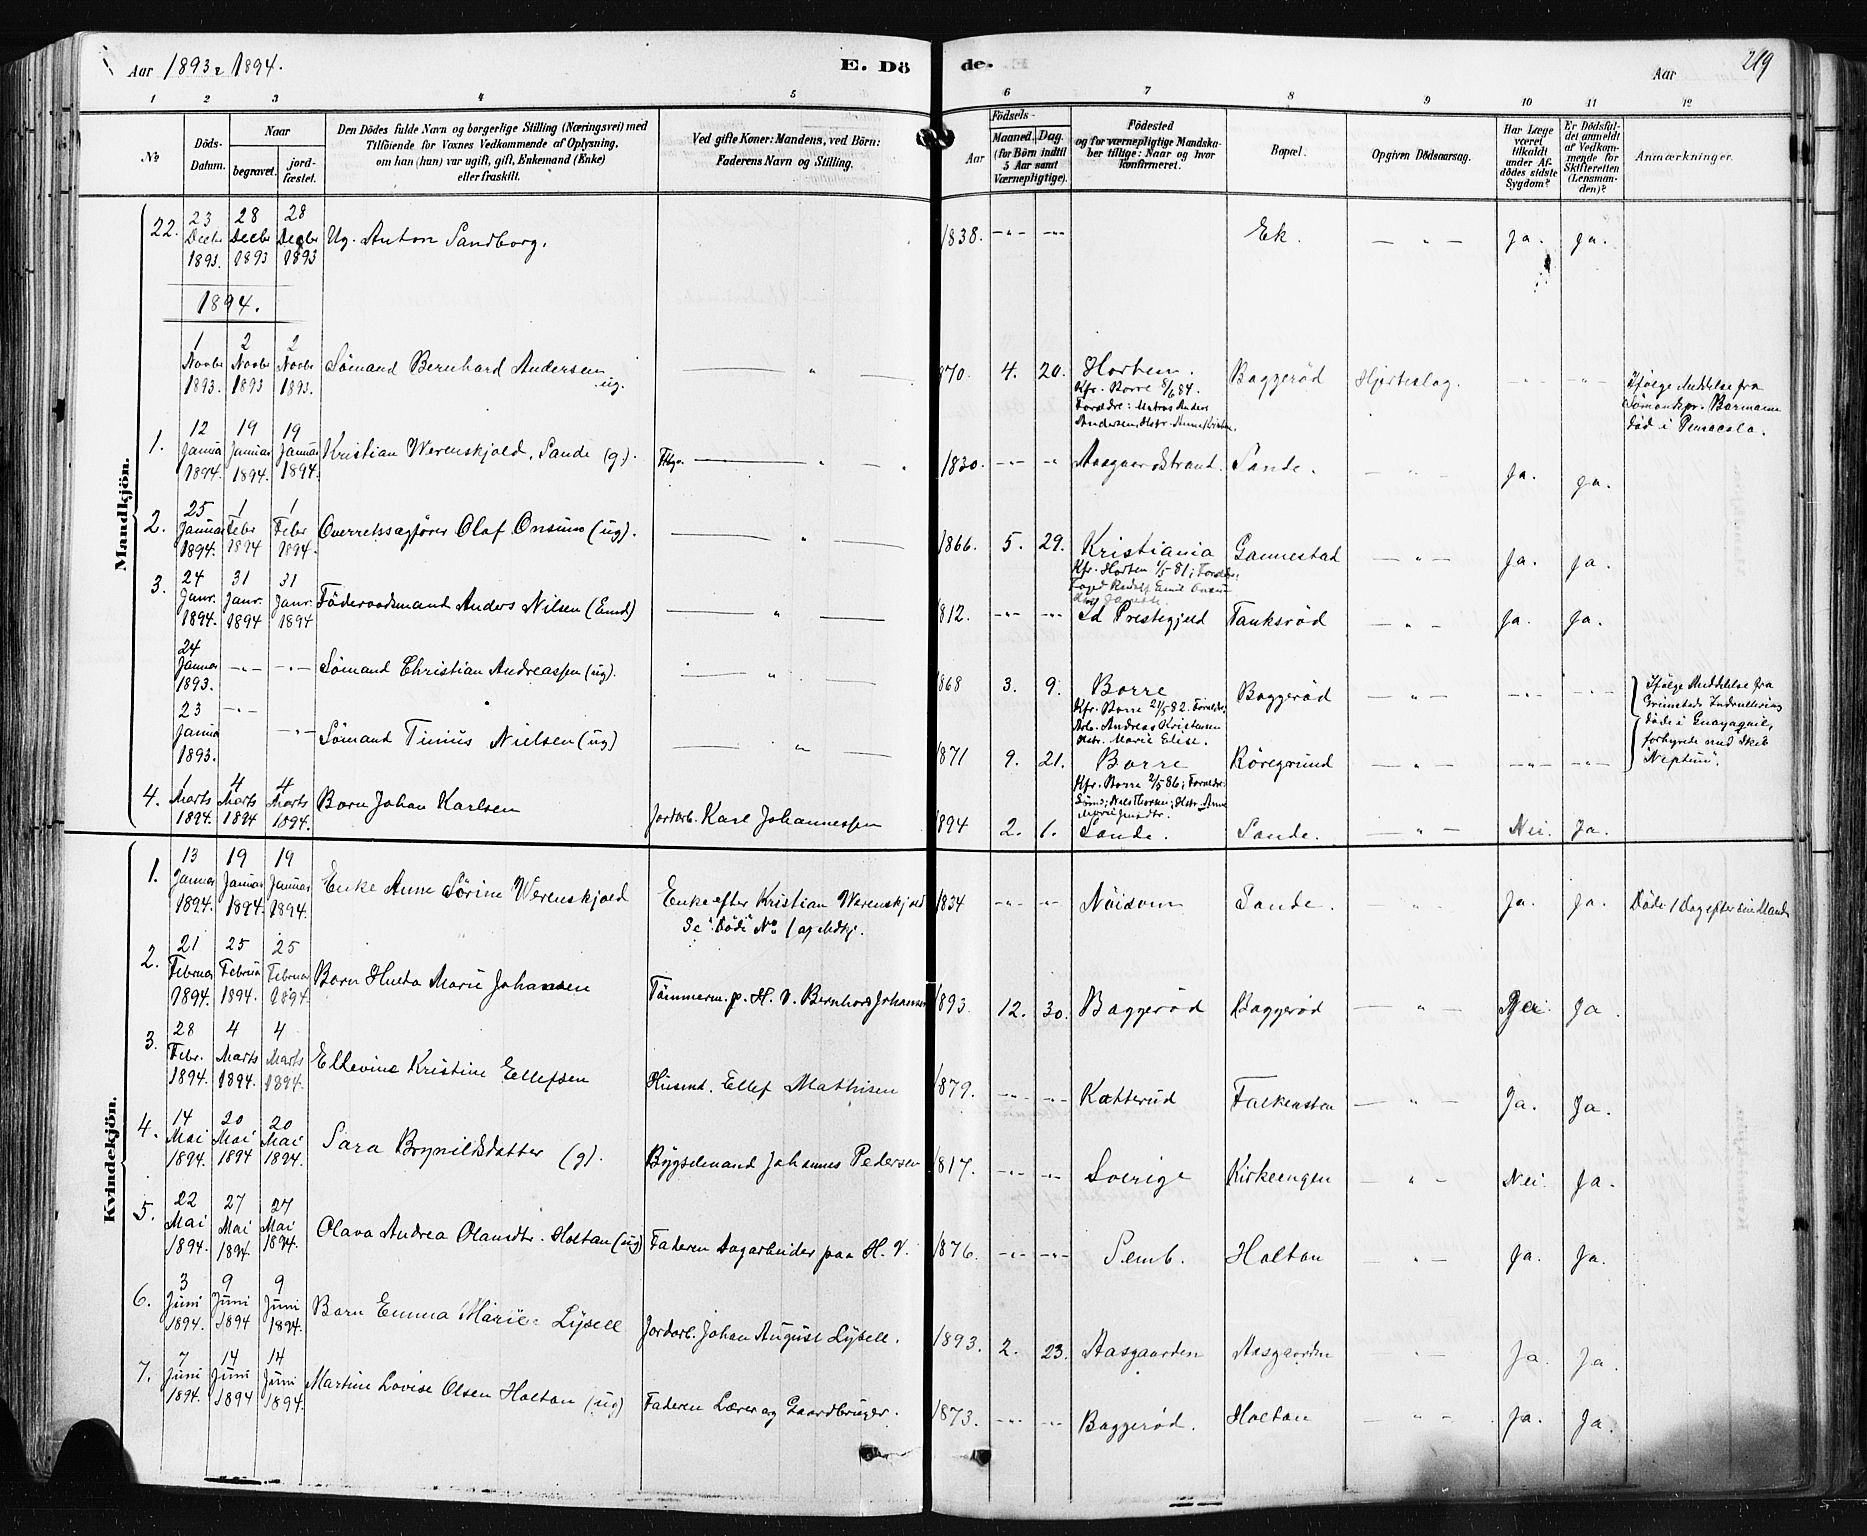 Aar 1893 & 1894. E. Dö de. Aar 219
1 2 3 4 5 6 7 8 9 10 11 12
№ Döds-Datum. Naar begravet. jord-fæstet.
Den Dödes fulde Navn og borgerlige Stilling (Næringsvei) med
Tilföiende for Voxnes Vedkommende af Oplysning,
om han (hun) var ugift, gift, Enkemand (Enke)
eller fraskilt.
Ved gifte Koner: Mandens, ved Börn:
Faderens Navn og Stilling.
Födsels-
Aar Maaned. Dag.
(for Börn indtil
5 Aar samt
Værnepligtige).
Födested
og for værnepligtige Mandska-
ber tillige: Naar og hvor
konfirmeret.
Bopæl.
Opgiven Dödsaarsag.
Har Læge
været
tilkaldt
under Af-
dödes sidste
Sygdom?
Er Dödsfal-
det anmeldt
af Vedkom-
mende for
Skifteretten
(Lensman-
den)?
Anmærkninger.
Mandkjön.
22. 23 Decbr 1893. 28 Decbr 1893 28 Decbr 1893 Ug. Anton Sandborg. 1838. -"- -"- Ek. — " — Ja. Ja.
1894.
1 Novbr 1893. 2 Novbr 1893 2 Novbr 1893. Sømand Bernhard Andersen ug. — " — 1870. 4. 20. Horten. Baggerød Hjerteslag. -"- -"-
Kfr. Borre 8/6 84.
Forældre: Matros Anders
Andersen, Hstr. Anne Kristin.
Ifølge Meddelse fra
Sømandspr.
død i Pensacola.
1. 12 Januar 1894. 19 Januar 1894. 19 Januar 1894. Kristian Werenskjold, Sande (g). — " — 1830. -"- " Aasgaardstrand. Sande. " Ja. Ja.
2. 25 Januar 1894. 1 Febr 1894 1 Febr 1894. Overretssagfører Olaf Onsum (ug). — " — 1866. 5. 29. Kristiania Gannestad — " — Ja. Ja.
Kfr. Horten 1/5 81; Foræld:
Foged Rudolf Emil Onsum
3. 24 Janr. 1894. 31 Janr. 1894 31 Janr. 1894 Føderaadsmand Anders Nilsen (Emd) — " — 1812. -"- -"- Sd Prestegjeld Tanksrød — " — Ja. Ja.
24 Januar 1893. -"- -"- Sømand Christian Andreassen (ug). — " — 1868 3. 9. Borre Baggerød — " — -"- -"-
Kfr. Borre 21/5 82. Foræld:
Arb. Andreas Kristensen
Hstr. Marie Elise.
Ifølge Meddelse fra
Grimstads Indrullering
døde i Guayaquil,
forhyrede med Skib
"Neptun".
23 Januar 1893. -"- -"- Sømand Tinius Nielsen (ug) — " — 1871 9. 21. Borre Røregrund — " — -"- -"-
Kfr. Borre 2/5 86; Forældre:
4. 1 Marts 1894. 4 Marts 1894 4 Marts 1894. Barn Johan Karlsen Jordarb. Karl Johannessen 1894 2. 1. Sande. Sande. — " — Nei. Ja.
Kvindekjön.
1. 13 Januar 1894. 19 Januar 1894. 19 Januar 1894. Enke Anne Sørine Werenskjold Enke efter Kristian Werenskjold 1834 -"- -"- Nøisom Sande. " Ja. Ja. Døde 1 Dag efter sin Mand
Se "Døde" No 1 af Mdkj.
2. 21 Februar 1894. 25 Februar 1894. 25 Februar 1894. Barn Hulda Marie Johansen Tømmerm. p. H. V. Bernhard Johansen 1893. 12. 30. Baggerød Baggerød — " — Ja
3. 28 Febr. 1894. 4 Marts 1894. 4 Marts 1894. Ellevine Kristine Ellefsen Husmd. Ellef Mathisen 1879. -"- -"- Katterud Falkensten — " — Ja. Ja.
4. 14 Mai 1894. 20 Mai 1894 20 Mai 1894. Sara Brynildsdatter (g). Bygselmand Johannes Pedersen 1817. -"- -"- Sverige Kirkeengen — " — Nei. Ja.
5. 22 Mai 1894. 27 Mai 1894. 27 Mai 1894. Olava Andrea Olausdtr. Holtan (ug) Faderen Dagarbeider paa H. V. 1876. -"- -"- Semb. Holtan " Ja. Ja.
6. 3 Juni 1894. 9 Juni 1894 9 Juni 1894. Barn Emma Marie Lysell Jordarb. Johan August Lysell. 1893. 2. 23. Aasgaarden Aasgaarden " Ja. Ja.
7. 7 Juni 1894. 14 Juni 1894 14 Juni 1894. Martine Lovise Olsen Holtan (ug) Faderen Lærer og Gaardbruger. 1873. -"- -"- Baggerød. Holtan — " — Ja. Ja.